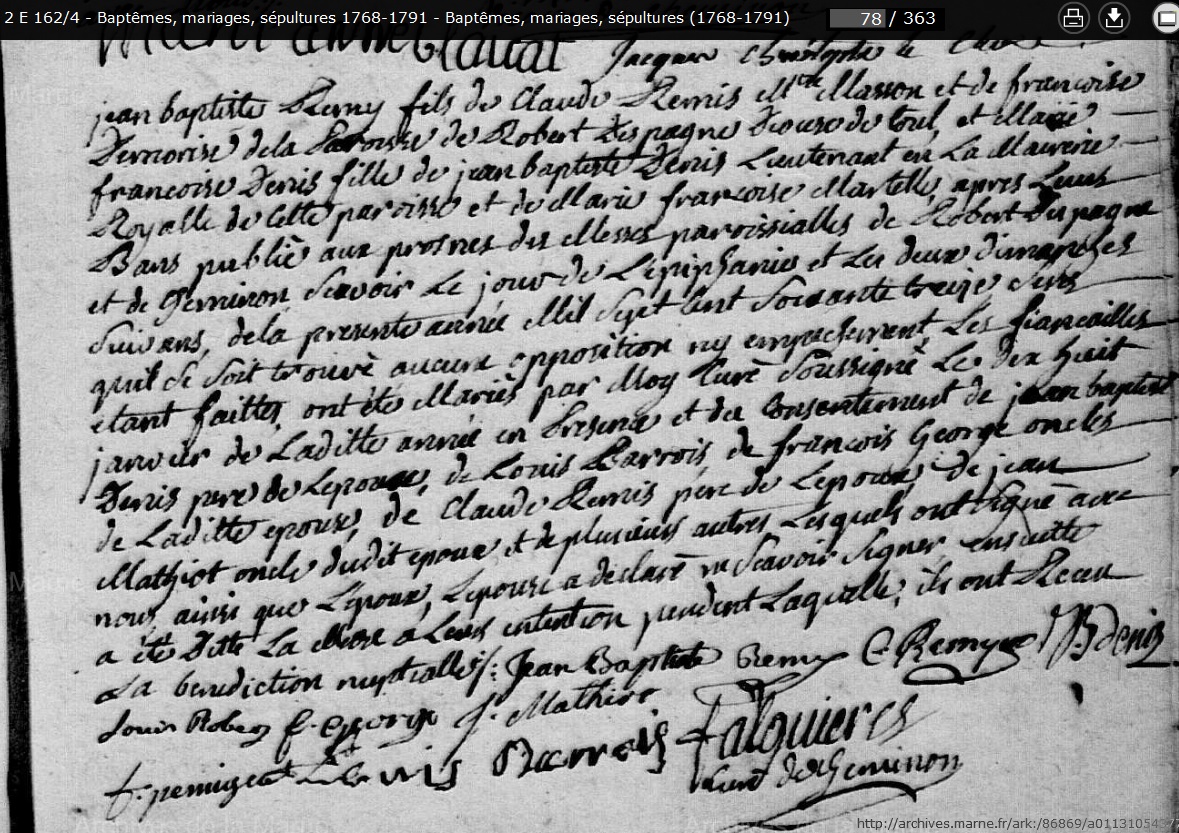 2 E 162/4 - Baptêmes, mariages, sépultures 1768-1791 - Baptêmes, mariages, sépultures (1768-1791) 78 / 363
Jacques Christophe le
jean baptiste Remy fils de Claude Remis Mtre Masson et de francoise
de la Paroisse de Robert Despagne Diocese de toul, et Marie
francoise Denis fille de jean baptiste Denis Lieutenant en La Maitrise
Royalle de Cette paroisse et de Marie francoise Martelle, apres Leurs
Bans publiè aux prosnes des Messes paroissialles de Robert Despagne
et de Geminon Scavoir Le jour de L'epiphanie et Les deux dimanches
Suivans, de la presente année Mil Sept Cent Soixante treize Sans
quil Se Soit trouvé aucune opposition ny empechement, Les fiancailles
etant faittes, ont été Mariés par Moy Curé Soussigné Le dix huit
janvier de Laditte année en Presence et du Consentement de jean baptiste
Denis pere de Lepouse, de Louis Barrois, de francois George oncles
de Laditte epouse, de Claude Remis pere de Lepoux, de jean
Mathiot oncle dudit epoux et de plusieurs autres Lesquels ont Signé avec
nous ainsi que L'epoux, Lepouse a declaré ne Scavoir Signer, ensuitte
a été Ditte La Messe a Leurs intention pendent Laquelle, ils ont Receu
La benediction nuptialle. Jean Baptiste Remy C Remy JB Denis
Louis f. George J. Mathiot
Louis Barrois falguieres
Curé de Geminon
http://archives.marne.fr/ark:/86869/a0113105437